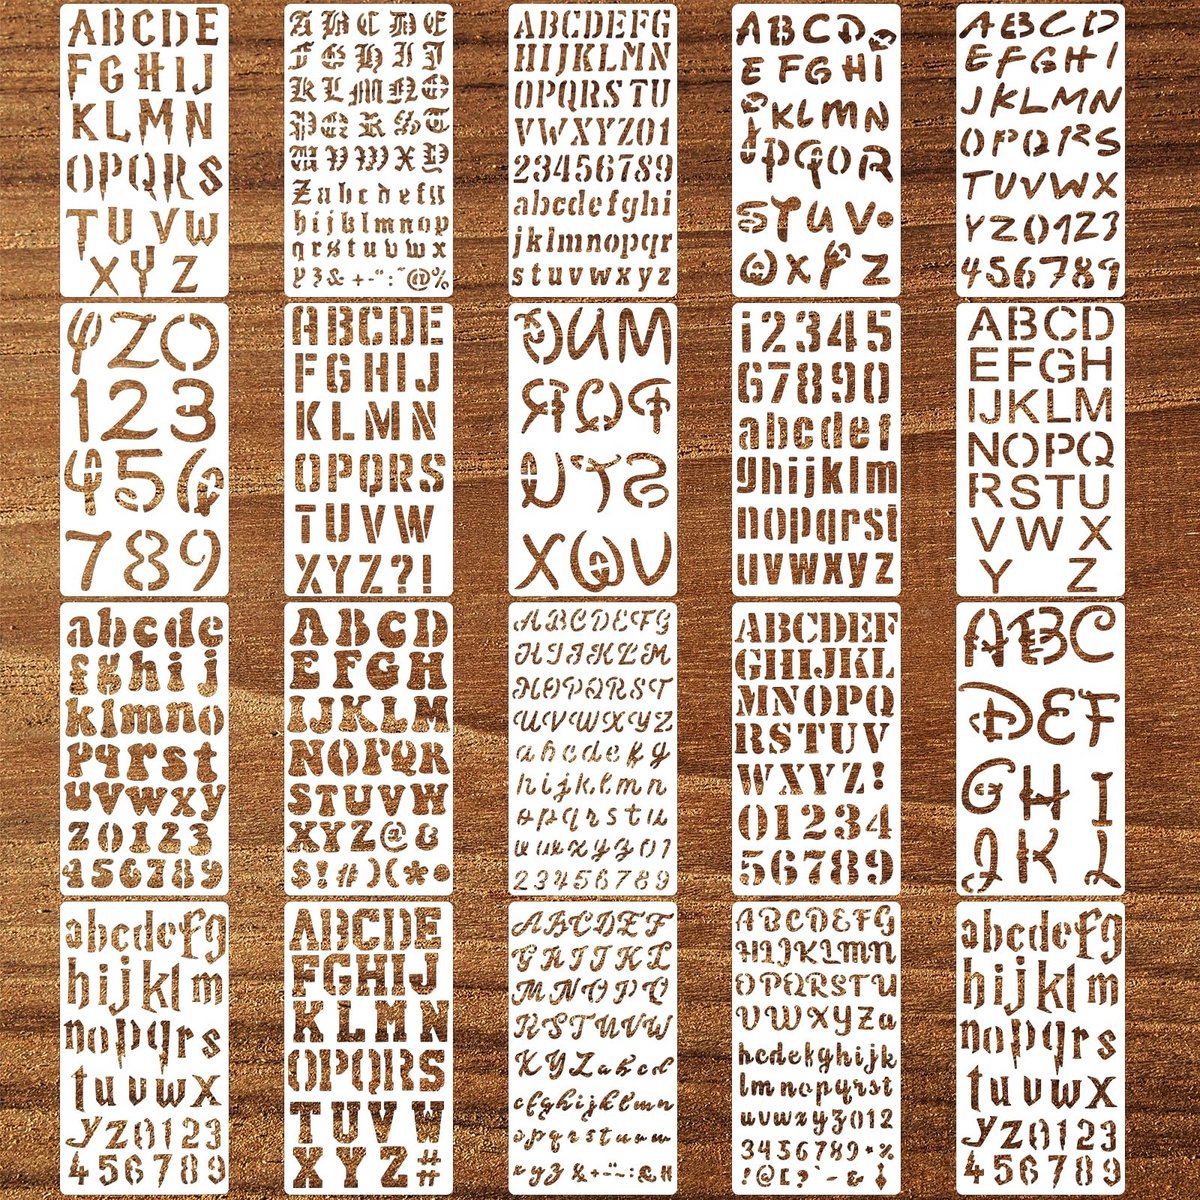 ABCDE
FGHIJ
KLMN
OPQRS
TUVW
XYZ
ABCDE
FGHIJ
KLMNO
PQRST
UVWXY
Zabcdefg
hijklmnop
qrstuvwx
yz&+-":~@%
ABCDEFG
HIJKLMN
OPQRSTU
VWXYZ01
23456789
abcdefghi
jklmnopqr
stuvwxyz
ABCD
EFGHI
JKLMN
PQOR
STUV
WXYZ
ABCD
EFGHI
JKLMN
OPQRS
TUVWX
YZ0123
456789
YZ0
123
456
789
ABCDE
FGHIJ
KLMN
OPQRS
TUVW
XYZ?!
12345
67890
abcdef
ghijklm
nopqrst
uvwxyz
ABCD
EFGH
IJKLM
NOPQ
RSTU
VWX
YZ
abcde
fghij
klmno
pqrst
uvwxy
z0123
456789
ABCD
EFGH
IJKLM
NOPQR
STUVW
XYZ@&
$!#)(*•
ABCDEFG
HIJKLM
NOPQRST
UVWXYZ
abcdefg
hijklmn
opqrstu
vwxyz01
23456789
ABCDEF
GHIJKL
MNOPQ
RSTUV
WXYZ!
01234
56789
ABC
DEF
GHI
JKL
abcdefg
hijklm
nopqrs
tuvwx
yz0123
456789
ABCDE
FGHIJ
KLMN
OPQRS
TUVW
XYZ#
ABCDEF
GHIJKL
MNOPQ
RSTUVW
XYZabcd
efghijklmn
opqrstuvw
ABCDEFG
HIJKLMN
OPQRSTU
VWXYZa
bcdefghijk
lmnopqrst
uvwxyz012
3456789*%
abcdefg
hijklm
nopqrs
tuvwx
yz0123
456789